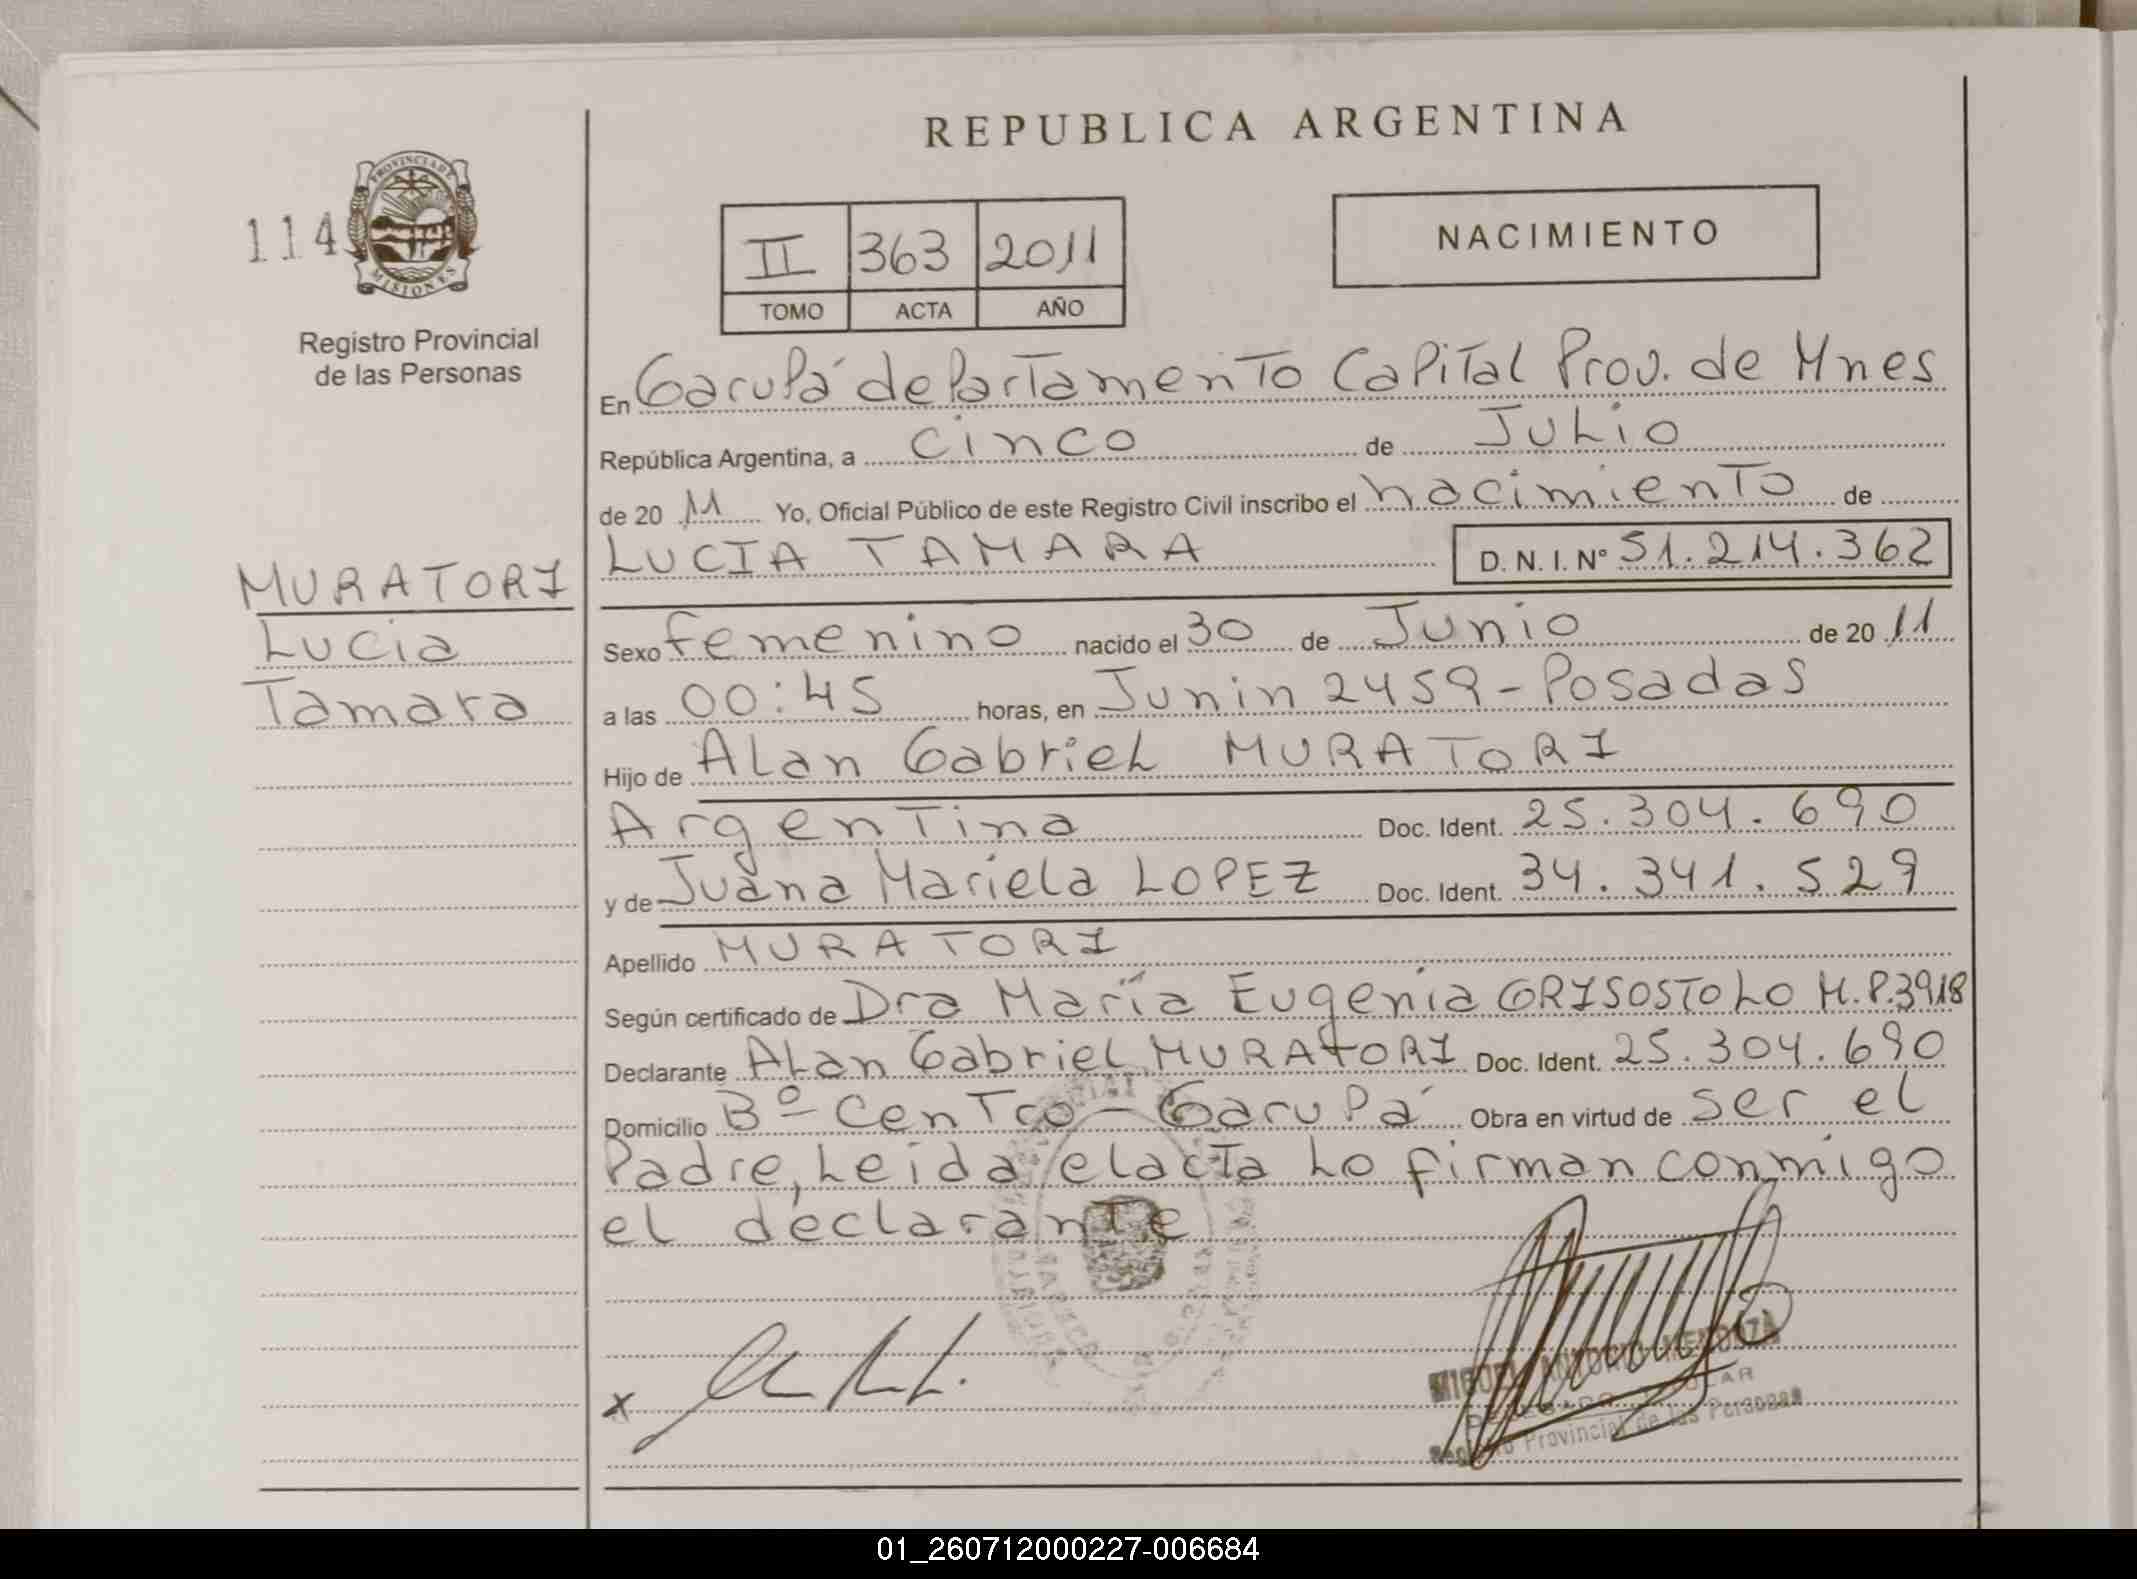 REPUBLICA ARGENTINA
114
PROVINCIA DE
MISIONES
Registro Provincial
de las Personas
II 363 2011
TOMO ACTA AÑO
NACIMIENTO
En Garupá departamento Capital Prov. de Mnes
República Argentina, a cinco de Julio
de 20 11 Yo, Oficial Público de este Registro Civil inscribo el nacimiento de
LUCIA TAMARA D.N.I.Nº 51.214.362
MURATORI
Lucia
Tamara
Sexo femenino nacido el 30 de Junio de 20 11
a las 00:45 horas, en Junin 2459 - Posadas
Hijo de Alan Gabriel MURATORI
Argentina Doc. Ident. 25.304.690
y de Juana Mariela LOPEZ Doc. Ident. 34.341.529
Apellido MURATORI
Según certificado de Dra María Eugenia GRISOSTOLO M.P.3918
Declarante Alan Gabriel MURATORI Doc. Ident. 25.304.690
Domicilio Bº - Centro - Garupá Obra en virtud de ser el
Padre, Leida el acta Lo firman conmigo
el declarante
x
MIGUEL ANTONIO MENDOZA
DELEGADO TITULAR
Registro Provincial de las Personas
01_260712000227-006684